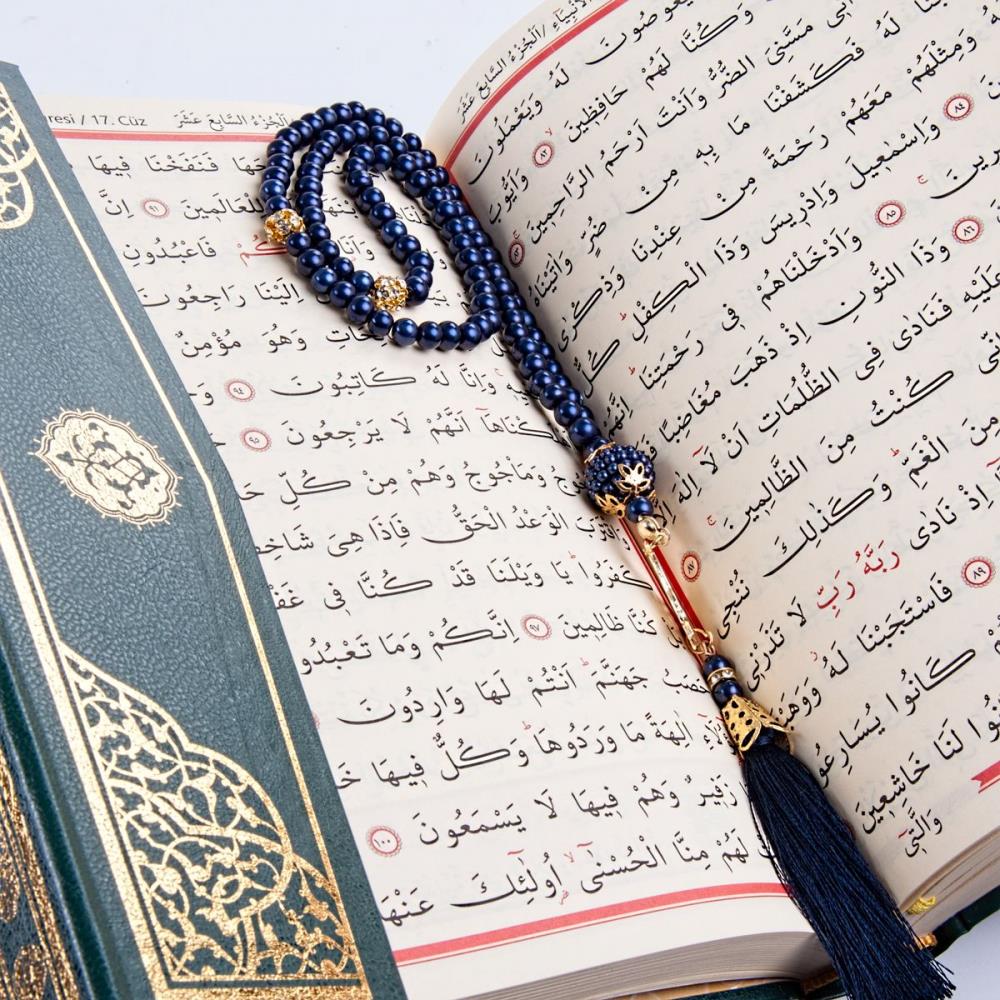 الْاَنْبِيَاءِ / اَلْجُزْءُ السَّابِعَ عَشَرَ
لَهُ وَيَعْمَلُونَ
وَكُنَّا لَهُمْ حَافِظِينَ ٨٢ وَاَيُّوبَ
مَسَّنِىَ الضُّرُّ وَاَنْتَ اَرْحَمُ الرَّاحِمِينَ ٨٣
لَهُ فَكَشَفْنَا مَا بِهِ مِنْ ضُرٍّ وَاٰتَيْنَاهُ
وَمِثْلَهُمْ مَعَهُمْ رَحْمَةً مِنْ عِنْدِنَا وَذِكْرٰى
٨٤ وَاِسْمٰعِيلَ وَاِدْرِيسَ وَذَا الْكِفْلِ كُلٌّ
٨٥ وَاَدْخَلْنَاهُمْ فِى رَحْمَتِنَا اِنَّهُمْ
٨٦ وَذَا النُّونِ اِذْ ذَهَبَ مُغَاضِبًا
عَلَيْهِ فَنَادٰى فِى الظُّلُمَاتِ اَنْ لَا اِلٰهَ
كُنْتُ مِنَ الظَّالِمِينَ ٨٧
مِنَ الْغَمِّ وَكَذٰلِكَ نُنْجِى
اِذْ نَادٰى رَبَّهُ رَبِّ لَا تَذَرْنِى
٨٩ فَاسْتَجَبْنَا لَهُ
كَانُوا يُسَارِعُو
لَنَا خَاشِعِينَ
وَالَّتِى
resi / 17. Cüz اَلْجُزْءُ السَّابِعَ عَشَرَ
فَنَفَخْنَا فِيهَا
لِلْعَالَمِينَ ٩١ اِنَّ
وَاَنَا فَاعْبُدُونِ
اِلَيْنَا رَاجِعُونَ
وَهُوَ مُؤْمِنٌ
وَاِنَّا لَهُ كَاتِبُونَ ٩٤
اَنَّهُمْ لَا يَرْجِعُونَ ٩٥
وَمَاْجُوجُ وَهُمْ مِنْ كُلِّ
الْوَعْدُ الْحَقُّ فَاِذَا هِىَ شَاخِصَ
كَفَرُوا يَا وَيْلَنَا قَدْ كُنَّا فِى غَفْ
كُنَّا ظَالِمِينَ ٩٧ اِنَّكُمْ وَمَا تَعْبُدُو
حَصَبُ جَهَنَّمَ اَنْتُمْ لَهَا وَارِدُونَ
اٰلِهَةً مَا وَرَدُوهَا وَكُلٌّ فِيهَا
زَفِيرٌ وَهُمْ فِيهَا لَا يَسْمَعُونَ ١٠٠
لَهُمْ مِنَّا الْحُسْنٰى اُولٰئِكَ عَنْهَا